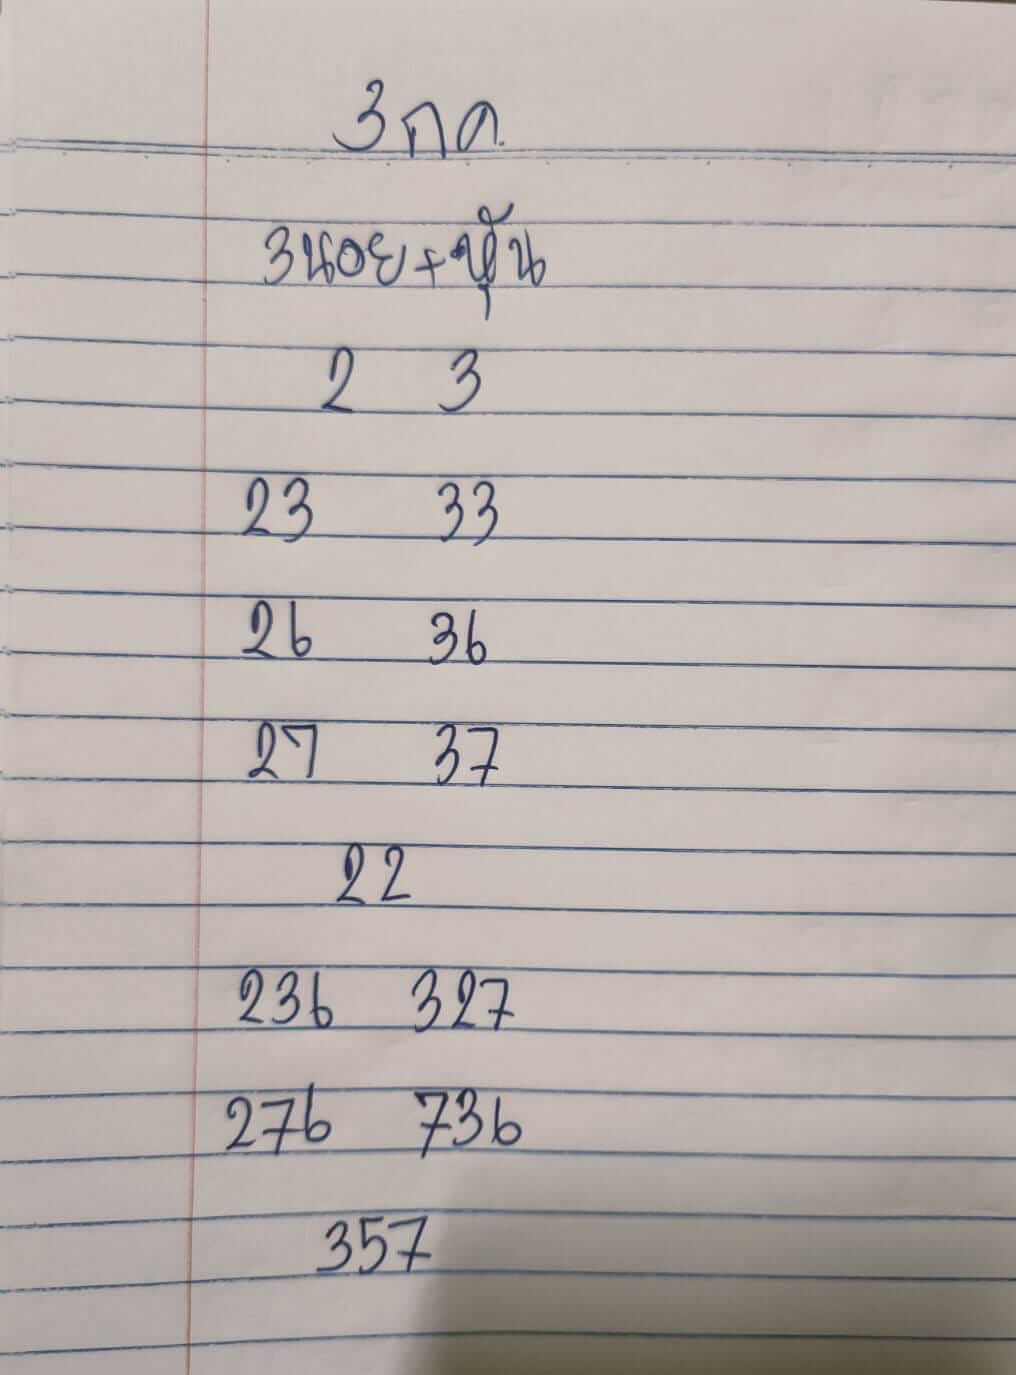 3 กค.
ฮานอย+หุ้น
2 3
23 33
26 36
27 37
22
236 327
276 736
357